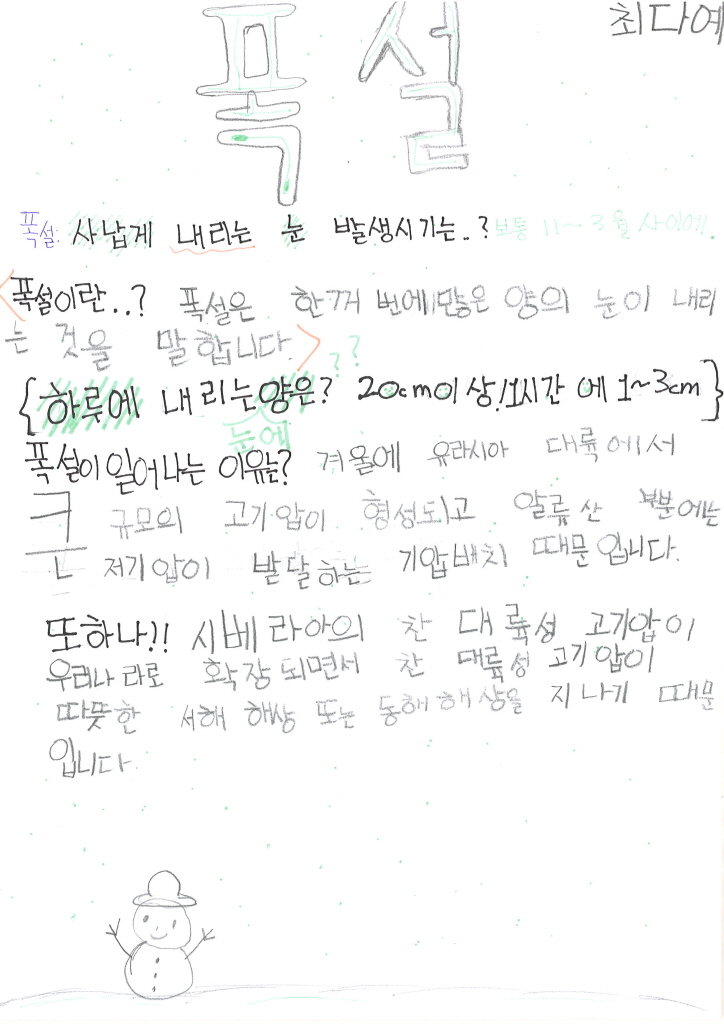 최다예
폭설
폭설: 사납게 내리는 눈 발생시기는..? 보통 11~3월 사이에.
<폭설이란..? 폭설은 한꺼번에 많은 양의 눈이 내리
는 것을 말합니다.> ??
{하루에 내리는 양은? 20cm이상!/1시간에 1~3cm}
눈에
폭설이 일어나는 이유는? 겨울에 유라시아 대륙에서
큰 규모의 고기압이 형성되고 알류산 부분에는
저기압이 발달하는 기압배치 때문입니다.
또하나!! 시베리아의 찬 대륙성 고기압이
우리나라로 확장되면서 찬 대륙성 고기압이
따뜻한 서해 해상 또는 동해 해상을 지나기 때문
입니다.